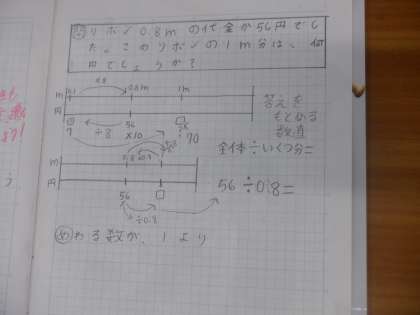 リボン0.8mの代金が56円でし
た。このリボンの1m分は、何
円でしょうか?
m 0.1 0.8m 1m
円 □ 56 □
7 ÷8 ×10 70
答えを
もとめる
数直
全体÷いくつ分=
m 0.8
円 56 □
÷0.8
56÷0.8=
め わる数が、1より